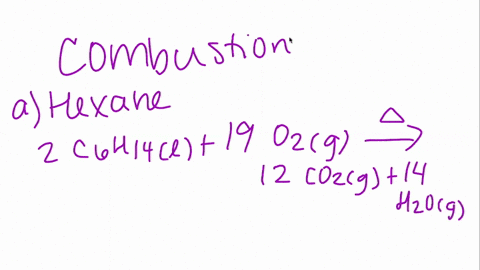 Combustion
a) Hexane
2 C6H14(l) + 19 O2(g) →Δ
12 CO2(g) + 14
H2O(g)